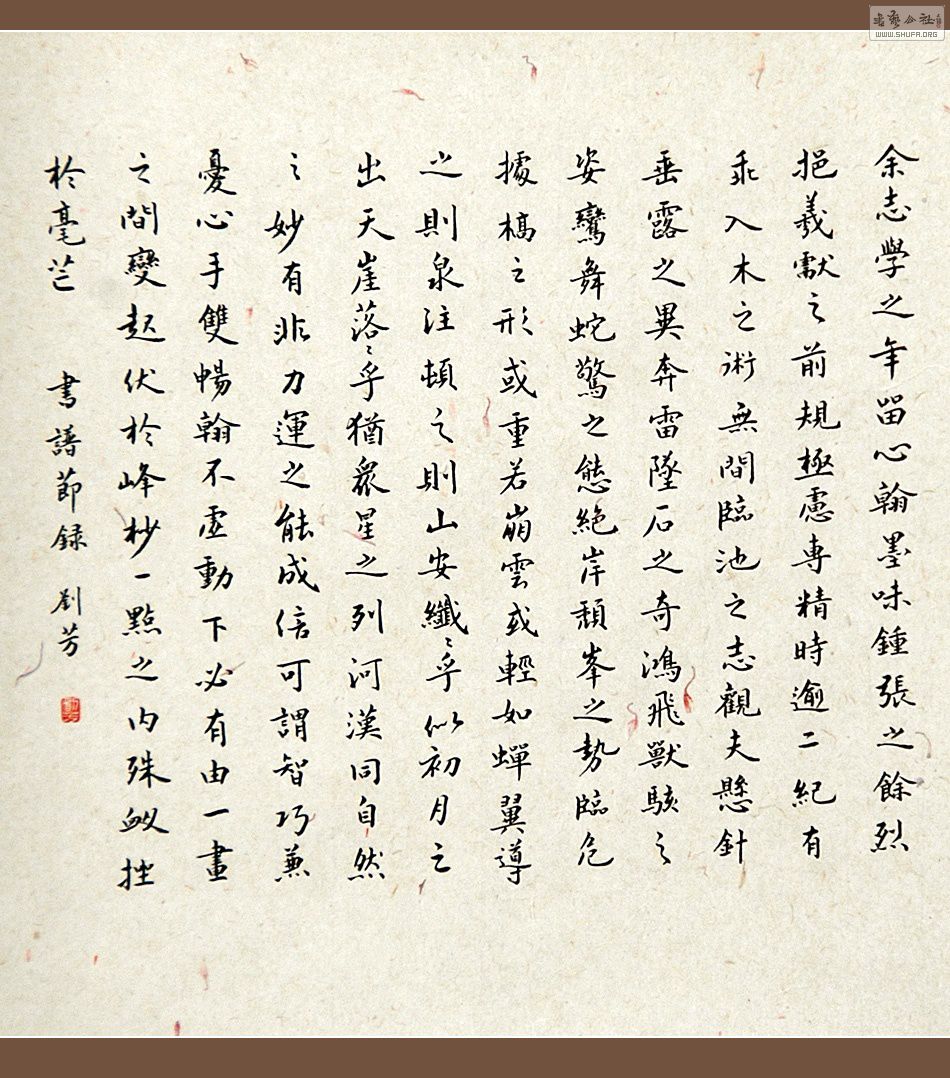 余志學之年留心翰墨味鍾張之餘烈
挹羲獻之前規極慮專精時逾二紀有
乖入木之術無間臨池之志觀夫懸針
垂露之異奔雷墜石之奇鴻飛獸駭之
姿鸞舞蛇驚之態絕岸頹峯之勢臨危
據槁之形或重若崩雲或輕如蟬翼導
之則泉注頓之則山安纖〻乎似初月之
出天崖落〻乎猶眾星之列河漢同自然
之妙有非力運之能成信可謂智巧兼
憂心手雙暢翰不虛動下必有由一畫
之間變起伏於峰杪一點之內殊衄挫
於毫芒 書譜節録 劉芳
WWW.SHUFA.ORG